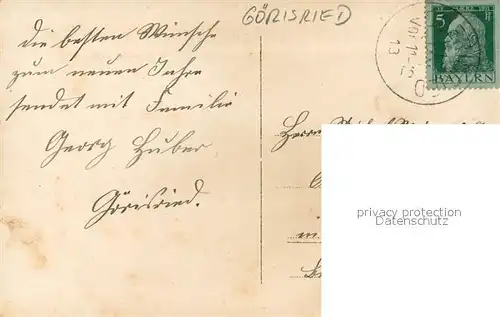 GÖRISRIED
Die besten Wünsche
zum neuen Jahre
sendet mit Familie
Georg Huber
Görisried.
5 Pf
BAYERN
VOR. 11-12
13
Herrn
privacy protection
Datenschutz